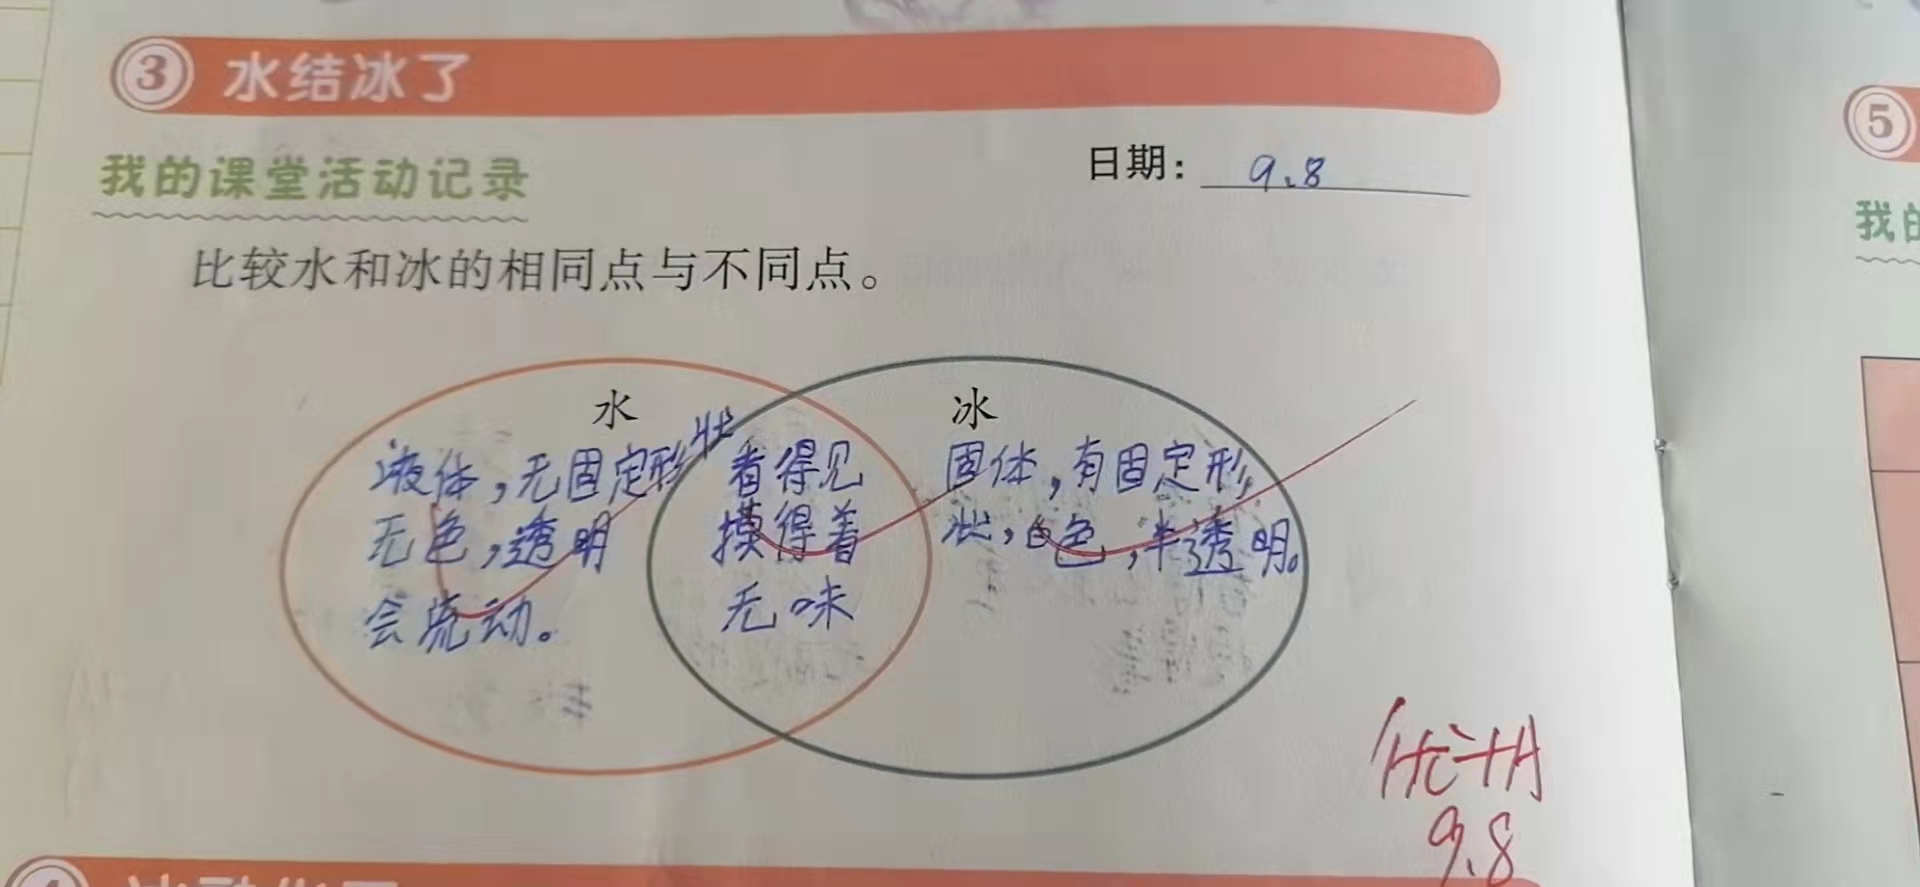 3 水结冰了
5
我的课堂活动记录
日期： 9.8
我的
比较水和冰的相同点与不同点。
水
液体，无固定形状
无色，透明
会流动。
看得见
摸得着
无味
冰
固体，有固定形
状，白色，半透明。
9.8